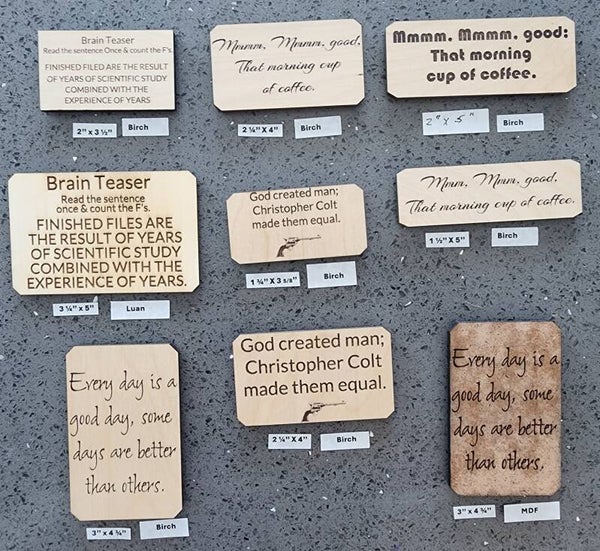 Brain Teaser
Read the sentence Once & count the F's.
FINISHED FILED ARE THE RESULT
OF YEARS OF SCIENTIFIC STUDY
COMBINED WITH THE
EXPERIENCE OF YEARS
2" x 3 ½"
Birch
Mmmm, Mmmm, good.
That morning cup
of coffee.
2 ¼" X 4"
Birch
Mmmm. Mmmm. good:
That morning
cup of coffee.
2" x 5"
Birch
Brain Teaser
Read the sentence
once & count the F's.
FINISHED FILES ARE
THE RESULT OF YEARS
OF SCIENTIFIC STUDY
COMBINED WITH THE
EXPERIENCE OF YEARS.
3 ¼" x 5"
Luan
God created man;
Christopher Colt
made them equal.
1 ¾" X 3 5/8"
Birch
Mmm, Mmm, good.
That morning cup of coffee.
1 ½" X 5"
Birch
Every day is a
good day, some
days are better
than others.
3" x 4 ¾"
Birch
God created man;
Christopher Colt
made them equal.
2 ¼" X 4"
Birch
Every day is a
good day, some
days are better
than others.
3" x 4 ¾"
MDF